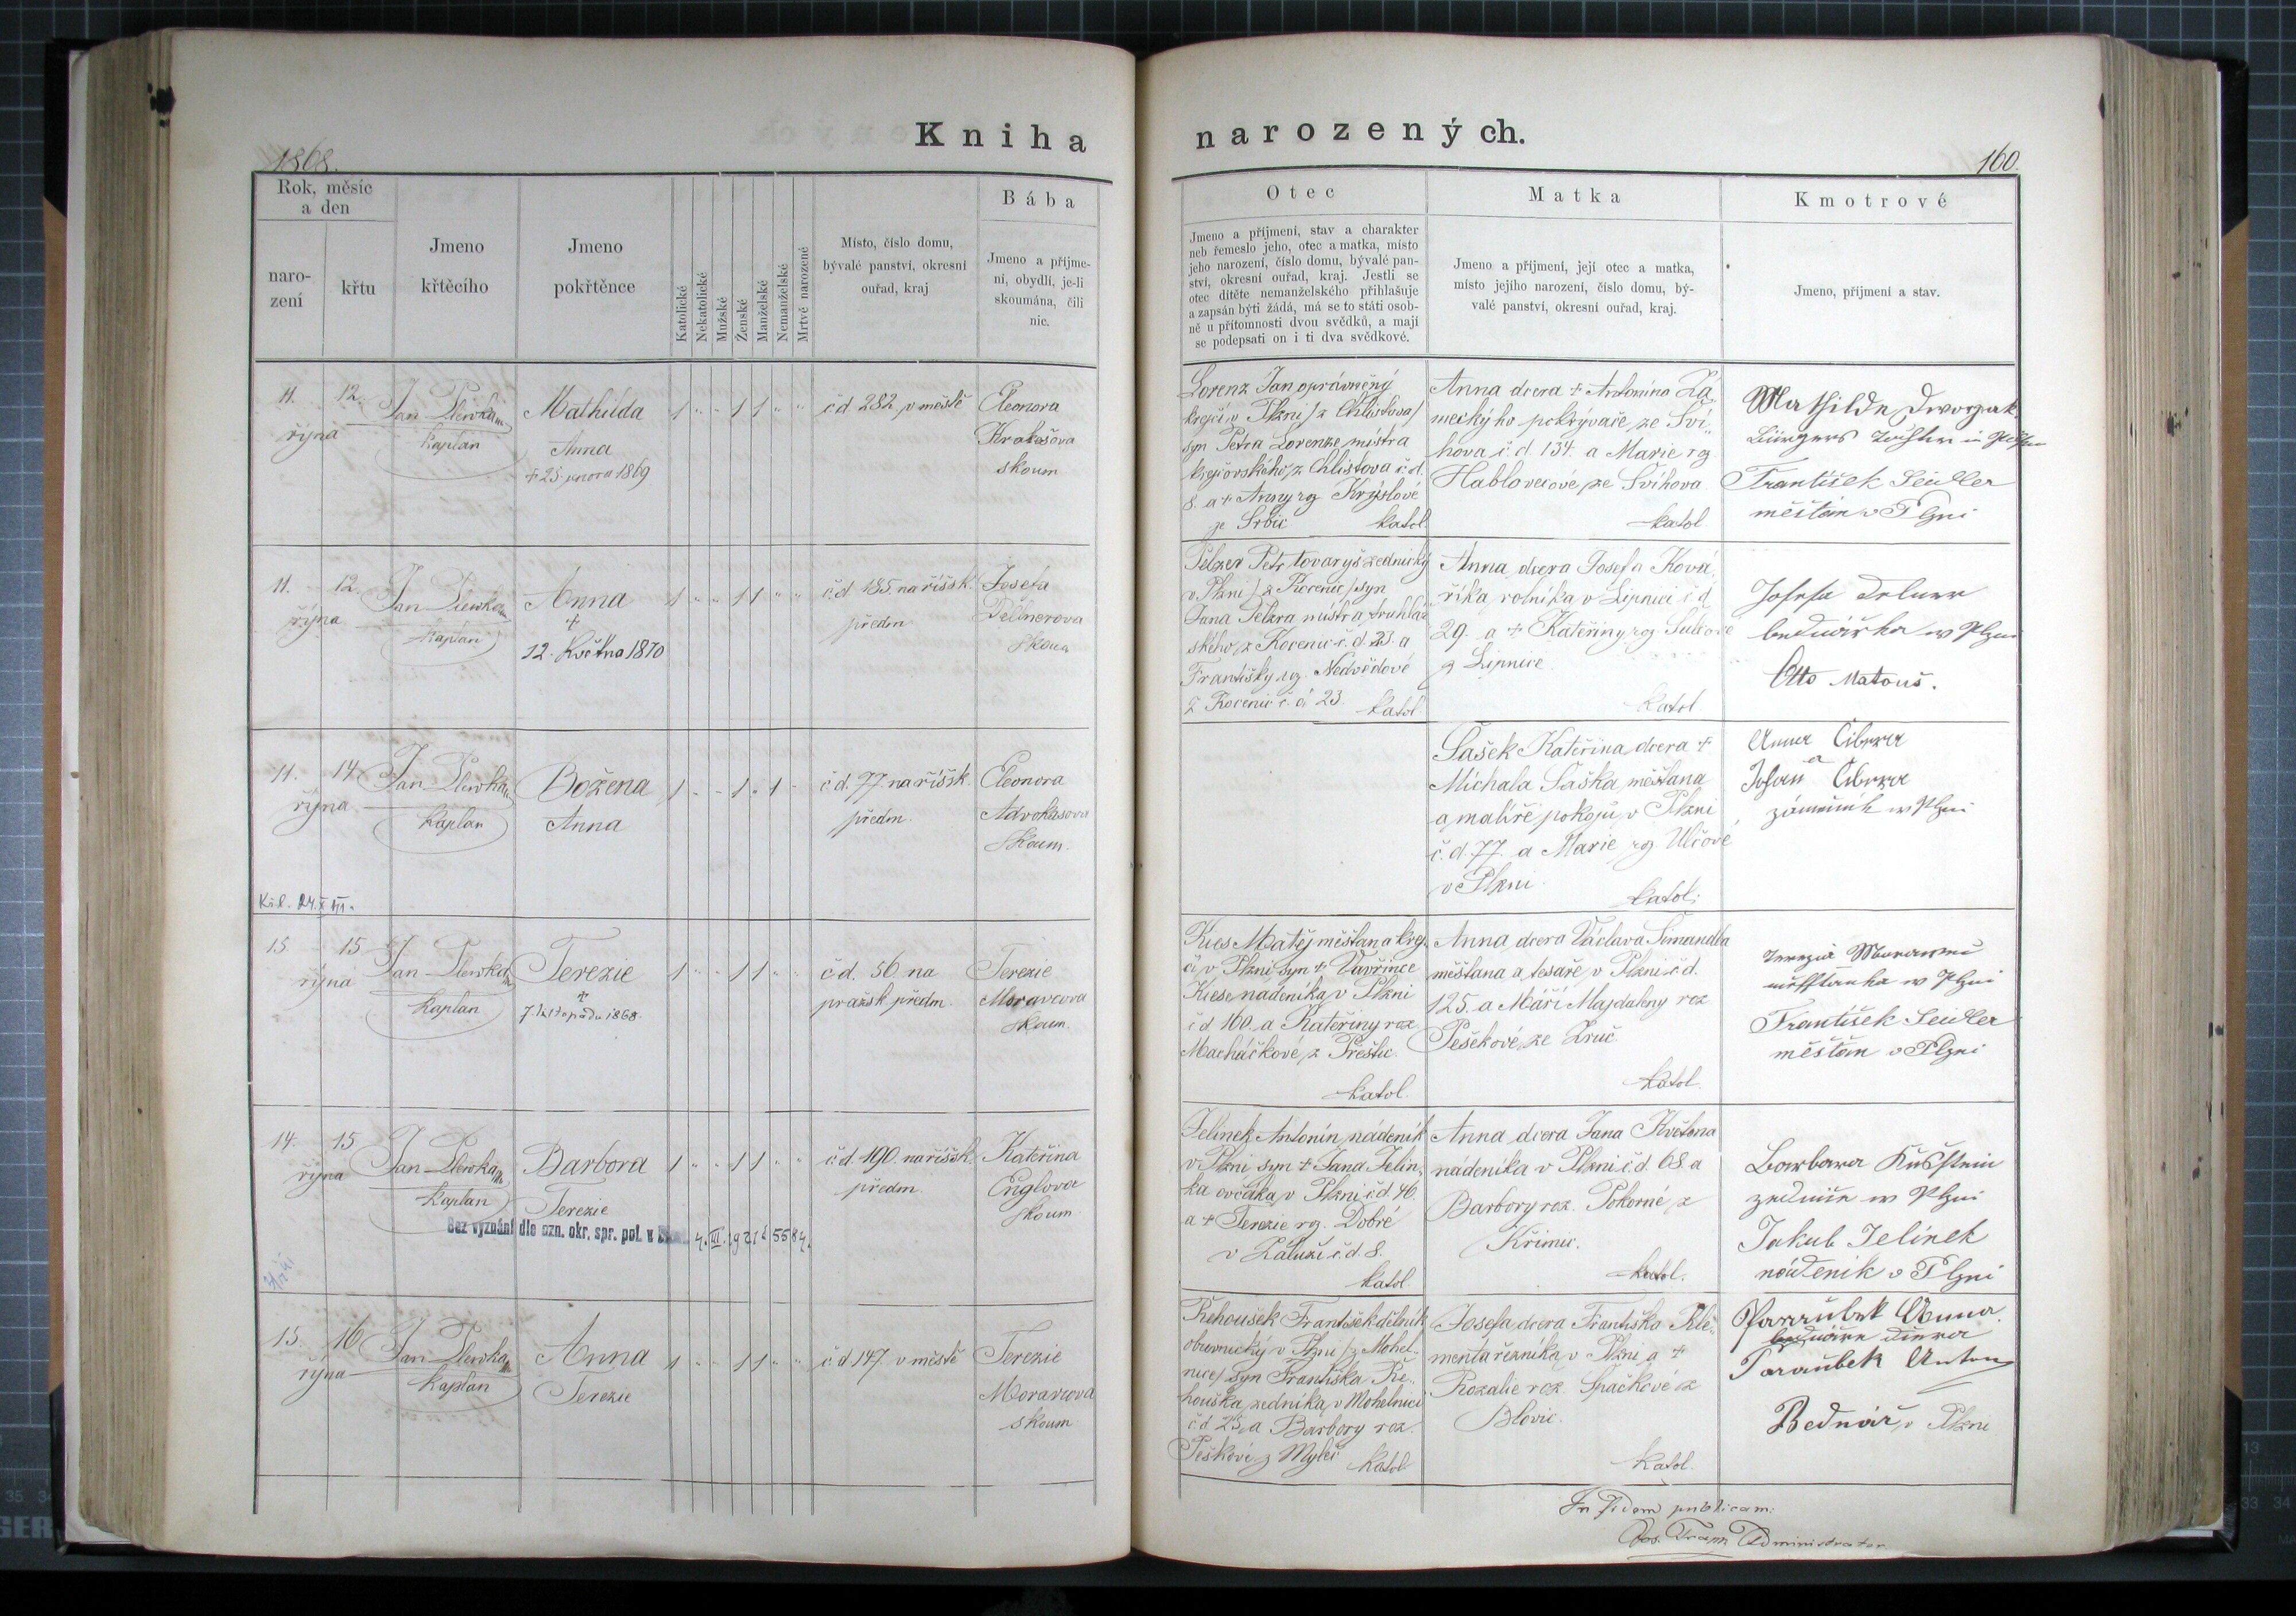 Kniha
narozených.
1868.
160.
Rok, měsíc
a den
naro-
zení
křtu
Jmeno
křtěcího
Jmeno
pokřtěnce
Katolické
Nekatolické
Mužské
Ženské
Manželské
Nemanželské
Mrtvě narozené
Místo, číslo domu,
bývalé panství, okresní
ouřad, kraj
Bába
Jmeno a příjme-
ní, obydlí, je-li
skoumána, čili
nic.
Otec
Jmeno a příjmení, stav a charakter
neb řemeslo jeho, otec a matka, místo
jeho narození, číslo domu, bývalé pan-
ství, okresní ouřad, kraj. Jestli se
otec dítěte nemanželského přihlašuje
a zapsán býti žádá, má se to státi osob-
ně u přítomnosti dvou svědků, a mají
se podepsati on i ti dva svědkové.
Matka
Jmeno a příjmení, její otec a matka,
místo jejího narození, číslo domu, bý-
valé panství, okresní ouřad, kraj.
Kmotrové
Jmeno, příjmení a stav.
11. 12.
října
Jan Plewka
kaplan
Mathilda
Anna
+ 25. února 1869
1 " - 1 1 " "
č d 282 v městě
Eleonora
Krakašova
skoum
Lorenz Jan oprávněný
krejčí v Plzni /z Chlistova/
syn Petra Lorenze mistra
krejčovského z Chlistova č. d.
8. a + Anny rz Kryslové
ze Srbic katol
Anna dcera + Antonína Za,
meckýho pokrývače ze Švi,
hova č. d. 134. a Marie rz
Hablovecové ze Švihova
katol
Mathilde Dworzak
Bürgers Tochter in Pilsen
František Seidler
měštan v Plzni
11. 12.
října
Jan Plewka
kaplan
Anna
+
12. Května 1870
1 " " 1 1 " "
č. d 185. na říšsk.
předm
Josefa
Felbnerova
skoum
Pelzer Petr tovaryš zednický
v Plzni /z Kocenic/ syn
Jana Pelzra mistra truhlář
ského z Kocenic č. d. 23. a
Františky rz. Nedvědové
z Kocenic č. d 23. katol
Anna dcera Josefa Ková,
říka rolníka v Lipnici č d
29. a + Kateřiny rz. Šulcové
z Lipnice.
katol
bednářka w Plzni
Otto Matouš.
11. 14.
října
Jan Plewka
kaplan
Božena
Anna
1 - - 1 " 1 -
č d. 77. na říšsk.
předm.
Eleonora
Advokasova
skoum.
Šašek Kateřina dcera +
Michala Šaška měštana
a malíře pokojů v Plzni
č. d. 77. a Marie rz. Ulčové
v Plzni.
katol.
Anna Cibrza
a
Johan Cibrza
zámečník w Plzni
13 15
října
Jan Plewka
kaplan
Terezie
+
7. listopadu 1868.
1 " " 1 1 " "
č d. 56. na
pražsk předm.
Terezie
Moravcova
skoum.
Kies Matěj měštan a krej,
čí v Plzni syn + Vavřince
Kiese nádeníka v Plzni
č d 160. a Kateřiny roz
Macháčkové z Přeštic.
katol.
Anna dcera Václava Šimandla
měštana a tesaře v Plzni č d.
125. a Máří Majdaleny roz
Pešekové ze Zruč.
katol.
w Plzni
František Seidler
měšťan v Plzni
14. 15
října
Jan Plewka
kaplan
Barbora
Terezie
Bez vyznání dle ozn. okr. spr. pol. v
4. III. 1921 č 5584.
1 " " 1 1 " "
č d 190. na říšsk.
předm.
Kateřina
Englova
skoum
Jelínek Antonín nádeník
v Plzni syn + Jana Jelín,
ka ovčáka v Plzni č d. 46.
a + Terezie rz. Dobré
v Zaluží č. d. 8.
katol
Anna dcera Jana Květona
nádeníka v Plzni č d. 68. a
Barbory roz. Pokorné z
Křimic.
katol.
w Plzni
Jakub Jelínek
nádeník v Plzni
15. 16
října
Jan Plewka
kaplan
Anna
Terezie
1 " " 1 1 " "
č d 147. v městě
Terezie
Moravcova
skoum
Řehoušek František dělník
obuvnický v Plzni /z Mohel-
nice/ syn Františka Ře-
houška zedníka v Mohelnici
č d 25. a Barbory roz.
Peškové z Mylče katol
Josefa dcera Františka Kle-
menta řezníka v Plzni a +
Rozalie roz. Špačkové z
Blovic.
katol.
Paraubek Anna.
Paraubek Anton
Bednář v Plzni
In fidem publicam:
Administrator